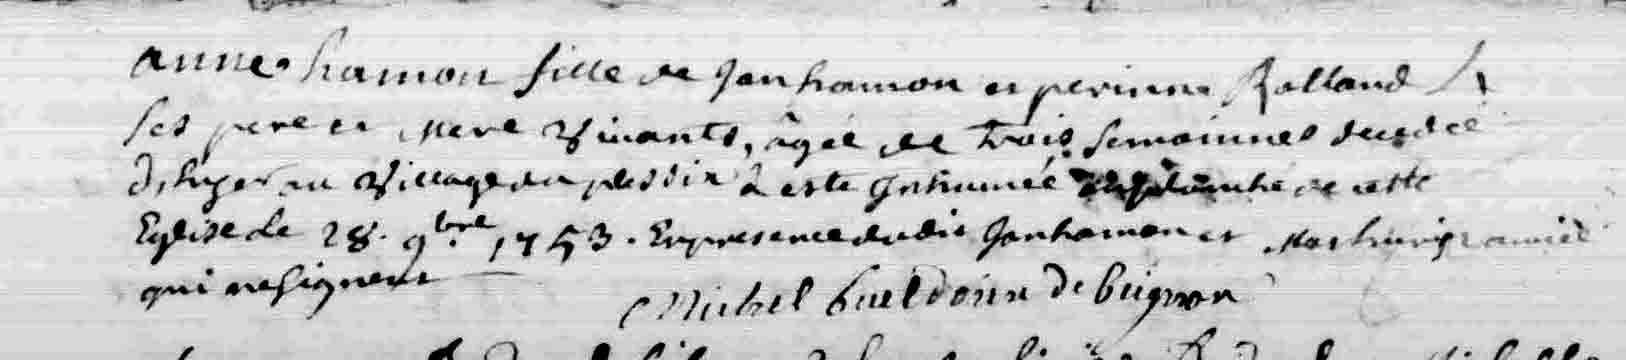 anne hamon fille de Jan hamon et perinne Rolland
ses pere et mere vivants, âgée de trois semainnes decedée
d'hyer au village du plessix à esté Inhumée de cette
Eglise le 28. 9bre 1753. En presence dudit Jan hamon et
qui ne signent
Michel de buignon